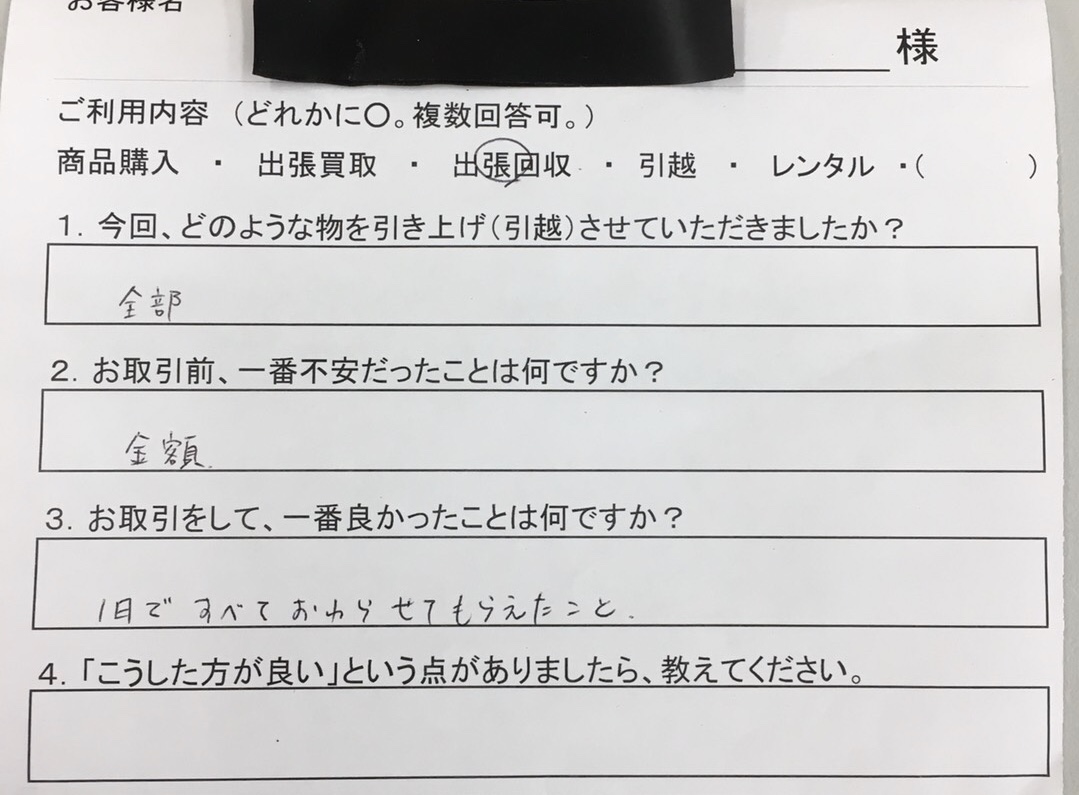 お客様名
様
ご利用内容 (どれかに〇。複数回答可。)
商品購入 ・ 出張買取 ・ 出張回収 ・ 引越 ・ レンタル ・( )
1. 今回、どのような物を引き上げ(引越)させていただきましたか?
全部
2. お取引前、一番不安だったことは何ですか?
金額.
3. お取引をして、一番良かったことは何ですか?
1日で すべて おわらせてもらえたこと.
4. 「こうした方が良い」という点がありましたら、教えてください。